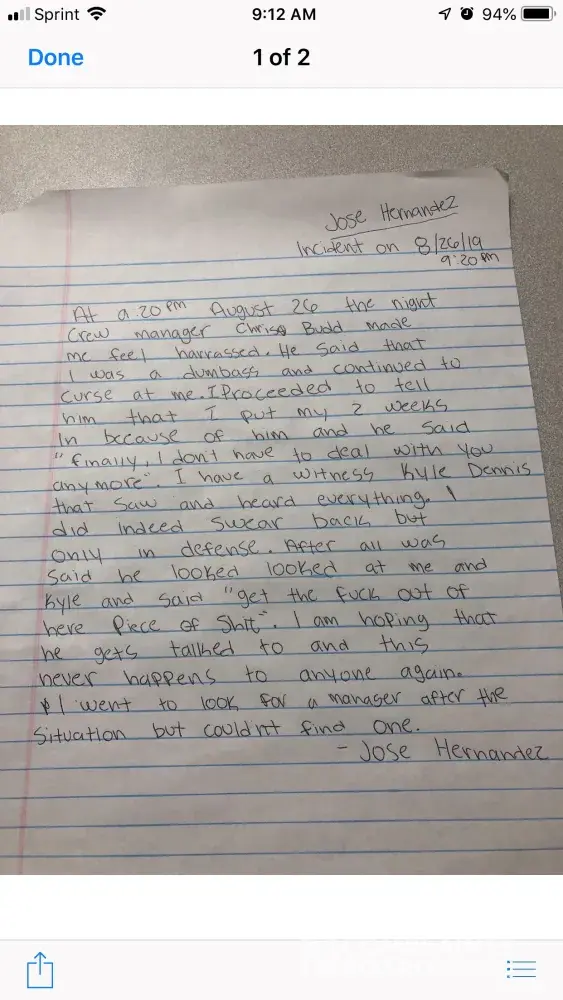 Sprint
9:12 AM
94%
Done
1 of 2
Jose Hernandez
Incident on 8/26/19
9:20 pm
At 9:20 pm August 26 the night
Crew manager Chris Budd made
me feel harrassed. He said that
I was a dumbass and continued to
curse at me. I Proceeded to tell
him that I put my 2 weeks
In because of him and he said
"finally, I don't have to deal with you
anymore". I have a witness Kyle Dennis
that saw and heard everything. I
did indeed swear back but
only in defense. After all was
said he looked looked at me and
Kyle and said "get the fuck out of
here Piece of Shit". I am hoping that
he gets talked to and this
never happens to anyone again.
I went to look for a manager after the
Situation but couldn't find one.
- Jose Hernandez